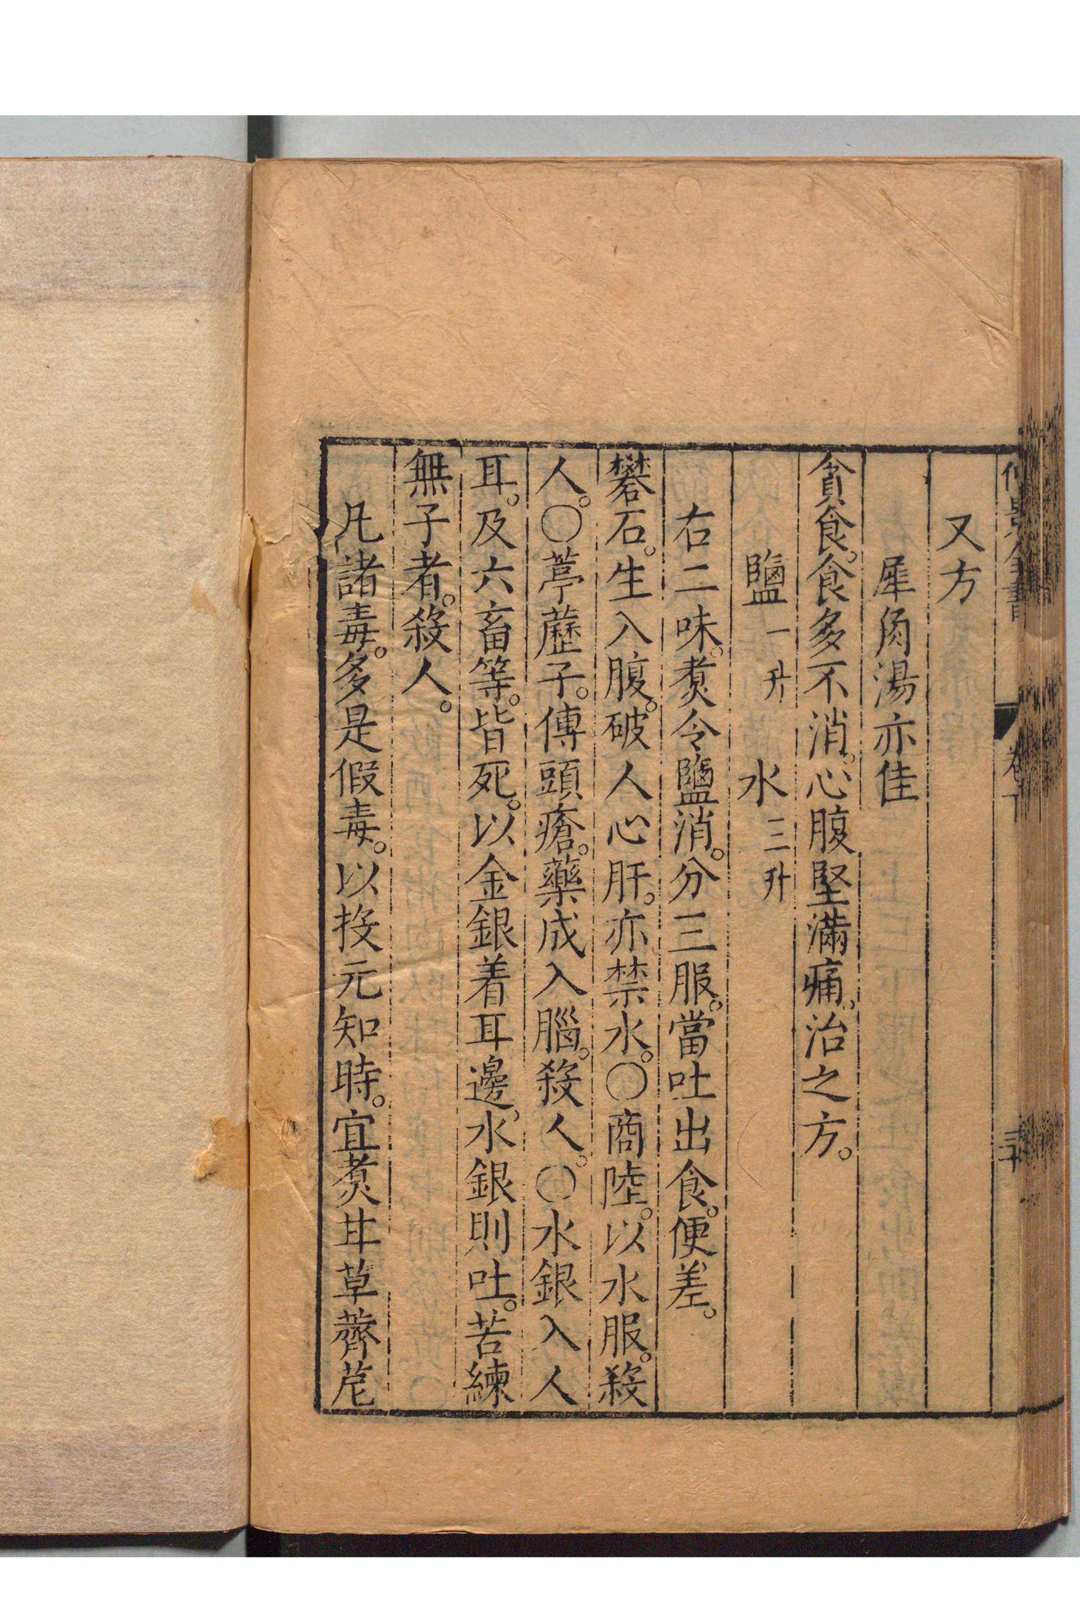 又方
犀角湯亦佳
貪食。食多不消。心腹堅滿痛。治之方。
鹽一升 水三升
右二味。煑令鹽消。分三服。當吐出食。便差。
礬石。生入腹。破人心肝。亦禁水。○商陸。以水服。殺
人。○葶藶子。傅頭瘡。藥成入腦。殺人。○水銀入人
耳。及六畜等。皆死。以金銀着耳邊。水銀則吐。苦練
無子者。殺人。
凡諸毒。多是假毒。以投元知時。宜煑甘草薺苨